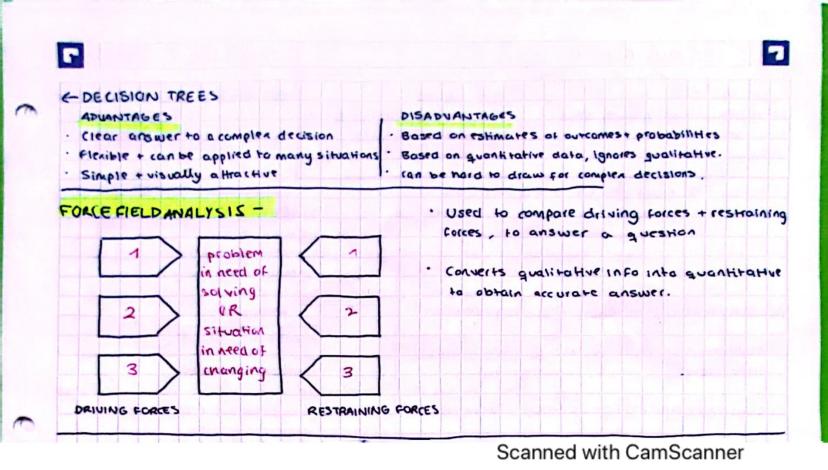 ← DECISION TREES
ADVANTAGES
· Clear answer to a complex decision
· Flexible + can be applied to many situations
· Simple + visually attractive
DISADVANTAGES
· Based on estimates of outcomes + probabilities
· Based on quantitative data, ignores qualitative.
· can be hard to draw for complex decisions.
FORCE FIELD ANALYSIS -
1
2
3
DRIVING FORCES
problem
in need of
solving
OR
situation
in need of
changing
1
2
3
RESTRAINING FORCES
· Used to compare driving forces + restraining
forces, to answer a question
· Converts qualitative info into quantitative
to obtain accurate answer.
Scanned with CamScanner